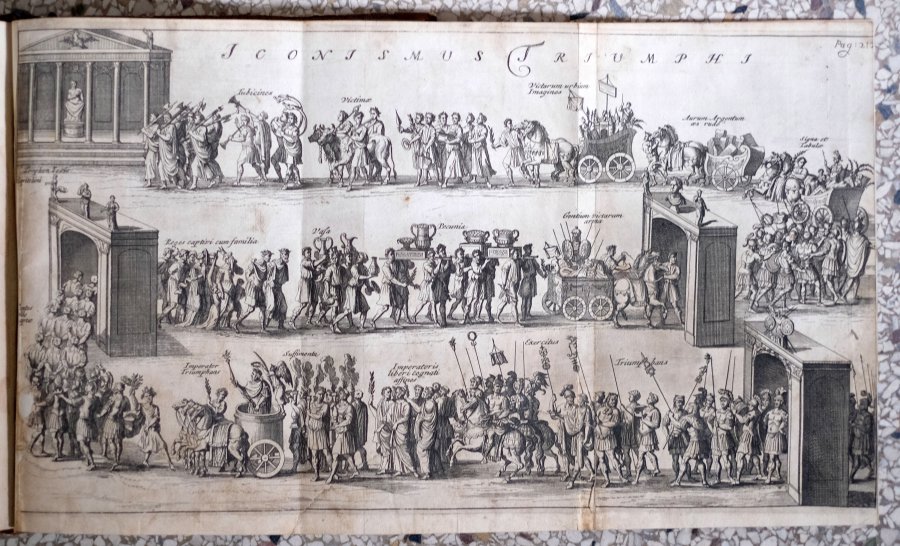 ICONISMUS TRIUMPHI
Pag: 21
Tubicines
Victimæ
Victarum urbium
Imagines
Aurum Argentum
æs rude
Signa et
Tabulæ
Reges captivi cum familia
Vasa
Pecunia
Gentium victarum
Imperator
Triumphans
Suffimenta
Imperatoris
liberi cognati
affines
Exercitus
Triumphans